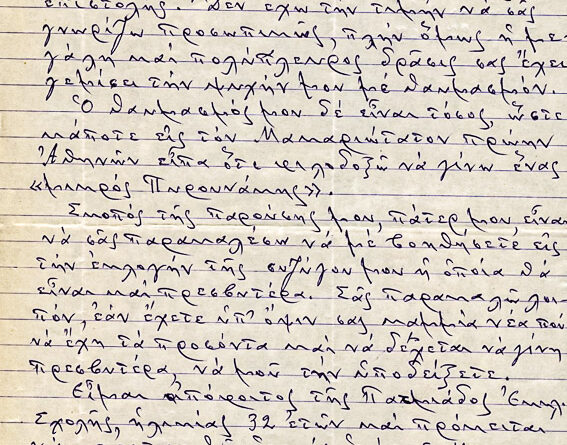 ἐπιστολῆς. Δέν ἔχω τήν τιμήν νά σᾶς
γνωρίζω προσωπικῶς, πλήν ὅμως ἡ με-
γάλη καί πολύπλευρος δρᾶσις σας ἔχει
γεμίσει τήν ψυχήν μου μέ θαυμασμόν.
Ὁ θαυμασμός μου δέ εἶναι τόσος, ὥστε
κάποτε εἰς τόν Μακαριώτατον πρώην
Ἀθηνῶν εἶπα ὅτι φιλοδοξῶ νά γίνω ἕνας
«μικρός Πυρουνάκης».
Σκοπός τῆς παρούσης μου, πάτερ μου, εἶναι
νά σᾶς παρακαλέσω νά μέ βοηθήσετε εἰς
τήν ἐπιλογήν τῆς συζύγου μου ἡ ὁποία θά
εἶναι καί πρεσβυτέρα. Σᾶς παρακαλῶ λοι-
πόν, ἐάν ἔχετε ὑπ' ὄψιν σας καμμιά νέα πού
νά ἔχη τά προσόντα καί νά δέχεται νά γίνη
πρεσβυτέρα, νά μοῦ τήν ὑποδείξετε.
Εἶμαι ἀπόφοιτος τῆς Πατμιάδος Ἐκκλ.
Σχολῆς, ἡλικίας 32 ἐτῶν καί πρόκειται